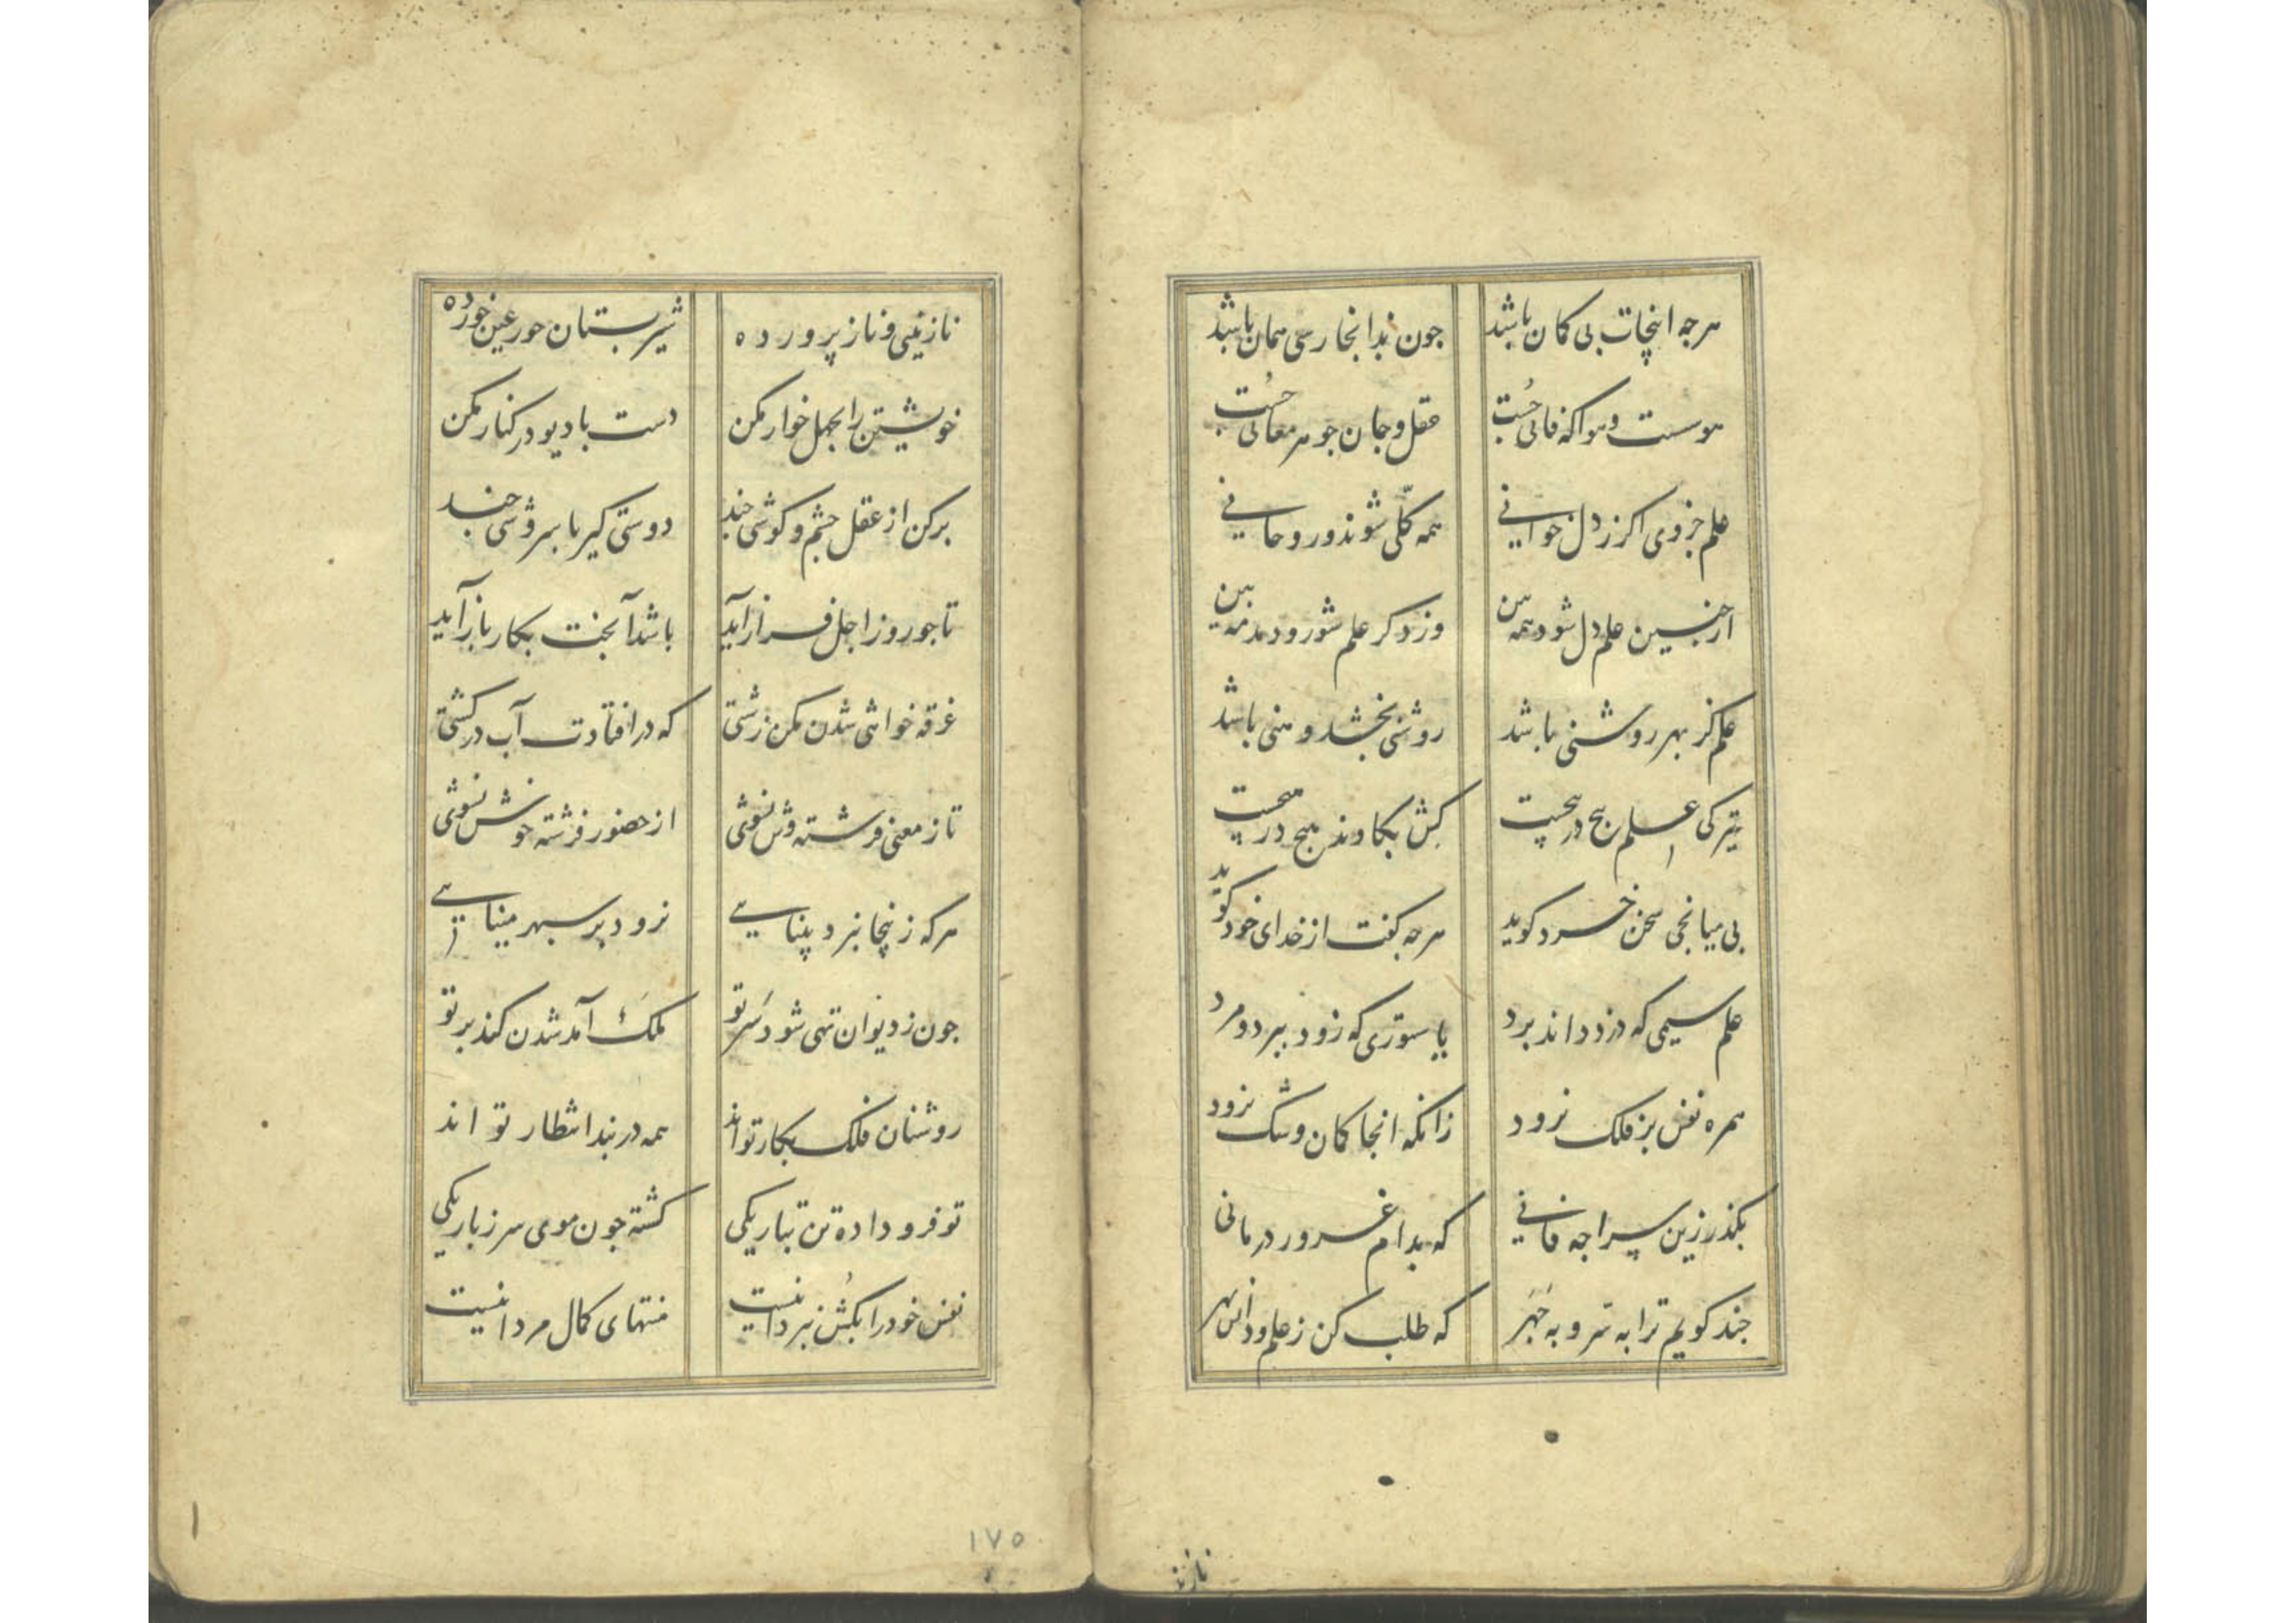 هرجه اینجات بی کمان باشد جون بدانجا رسی همان باشد
هوسست و هوا که فانی جُست عقل و جان جوهر معانی جُست
علم جزوی اکر ز دل خوانی همه کلّی شوند و روحانی
ازجنین علم دل شود همه بین وز دکر علم شور و دمدمه بین
علم کز بهر روشنی باشد روشنی بخشد و منی باشد
علم هیچ در هیچست کش بکاوند هیچ در هیچست
بی میانجی سخن خرد کوید هرجه کفت از خدای خود کوید
علم سیمی که دزد داند برد یا ستوری که زود میرد و مرد
همره نفس بر فلک نرود زانکه انجا کمان و شک نرود
بکذر زین سراجه فانی که بدام غرور درمانی
جند کویم ترا به سّر و به جَهَر که طلب کن ز علم و دانش بهر
نازنینی و ناز پرورده شیر بستان حور عین خورده
خویشتن را بجهل خوار مکن دست با دیو در کنار مکن
برکن از عقل جشم و کوشی جند دوستی کیر با سروشی جند
تا جو روز اجل فراز آید باشد آنجت بکار باز آید
غرقه خواهی شدن مکن زشتی که درافتادت آب در کشتی
تا ز معنی فرشته وش نشوی از حضور فرشته خوش نشوی
هرکه زینجا نبرد بینایی نرود بر سپهر مینایی
جون ز دیوان تهی شود سَر تو ملَک آمد شدن کند بر تو
روشنان فلک بکار تواند همه در بند انتظار تو اند
تو فرو داده تن بتاریکی کشته جون موی سر ز باریکی
نفس خود را بکُش نبرد اینست منتهای کمال مرد اینست
نازنی
۱۷۵
۱